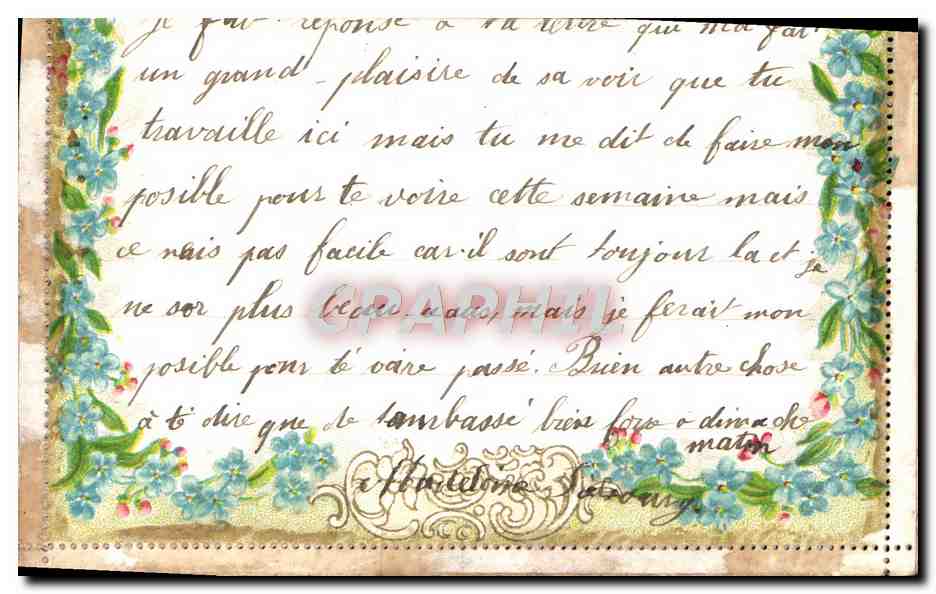 je fait réponse a ta lettre que ma fait
un grand plaisire de sa voir que tu
travaille ici mais tu me dit de faire mon
posible pour te voire cette semaine mais
ce nais pas facile car il sont toujour la et je
ne sor plus mais je ferait mon
posible pour té voire passé. Brien autre chose
à té dire que de tambrassé bien fore a dimache
matin
Madeleine
CPAPHIL